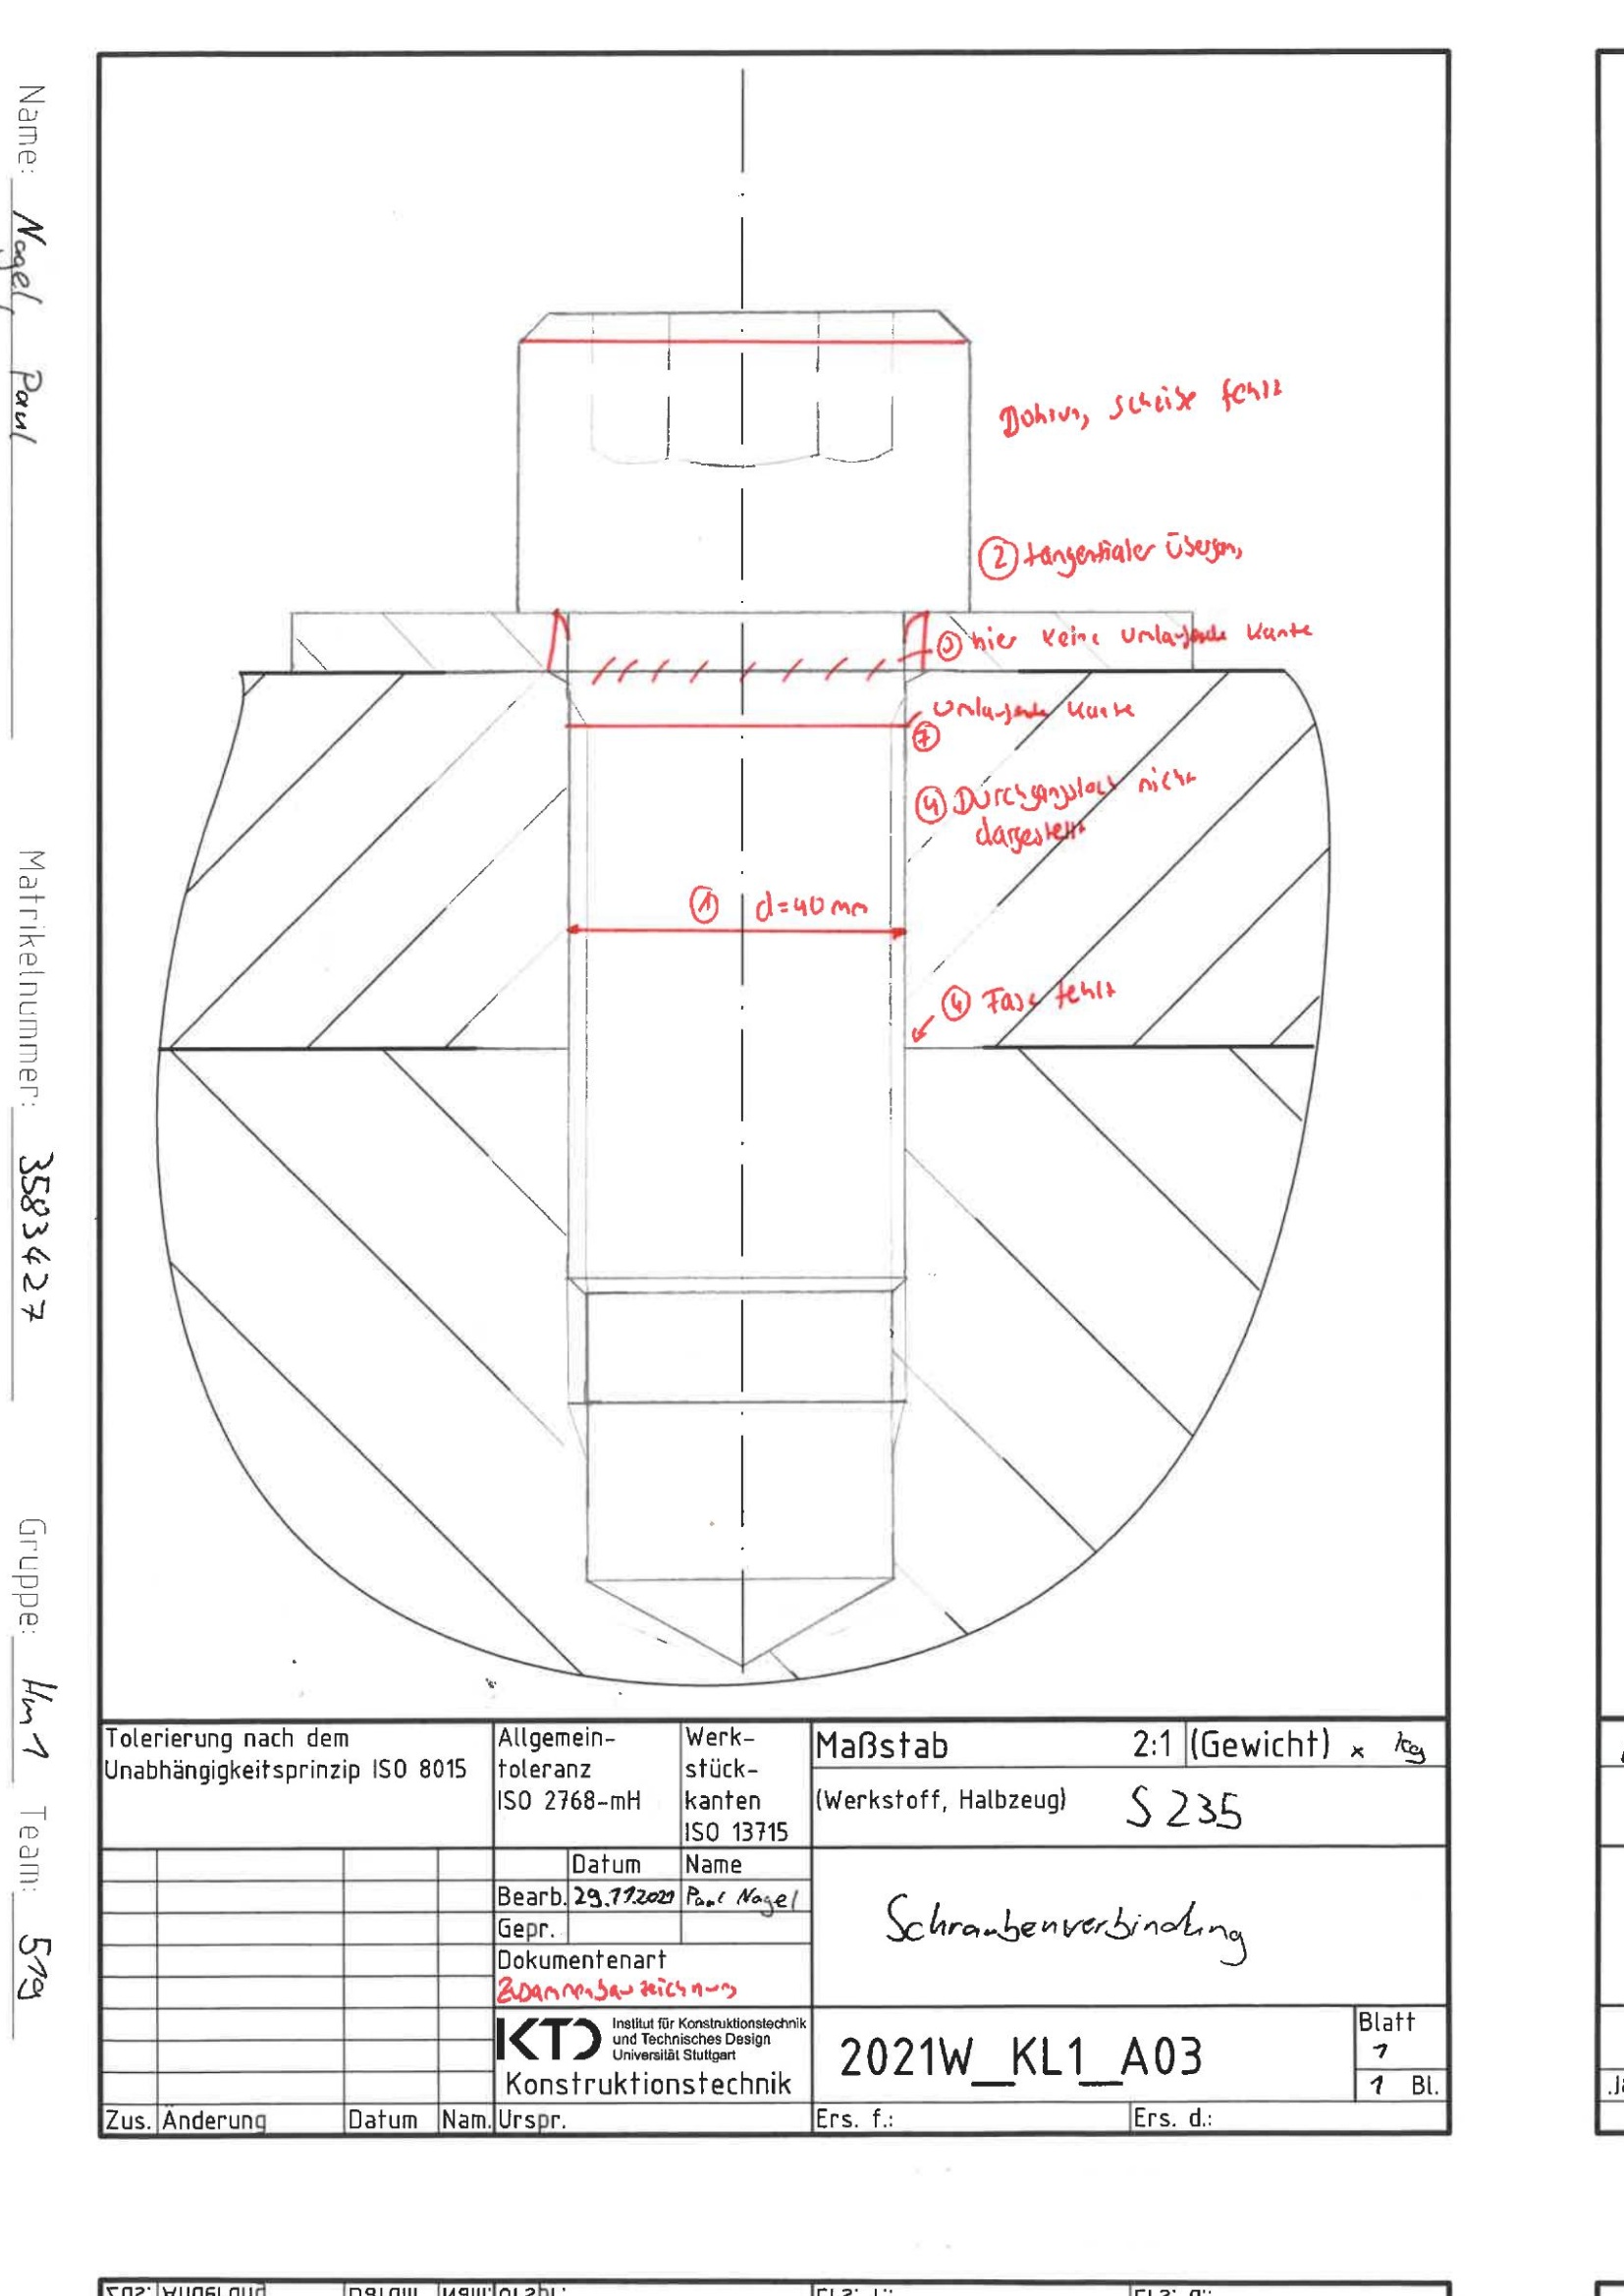 Name: Nagel, Paul
Matrikelnummer: 3583427
Gruppe: Hm1 Team: 519
scheibe fehlt
② tangentialer
hier keine umlaufende Kante
Umlaufende Kante
⑦
④ Durchgangsloch nicht
dargestellt
① d=40mm
④ Fase fehlt
Tolerierung nach dem
Unabhängigkeitsprinzip ISO 8015
Allgemein-
toleranz
ISO 2768-mH
Werk-
stück-
kanten
ISO 13715
Maßstab 2:1 (Gewicht) x kg
(Werkstoff, Halbzeug) S 235
Datum Name
Bearb. 29.11.2021 Paul Nagel
Gepr.
Dokumentenart
Zusammenbauzeichnung
Schraubenverbindung
KTD Institut für Konstruktionstechnik
und Technisches Design
Universität Stuttgart
Konstruktionstechnik
2021W_KL1_A03
Blatt
1
1 Bl.
Zus. Änderung Datum Nam. Urspr. Ers. f.: Ers. d.: